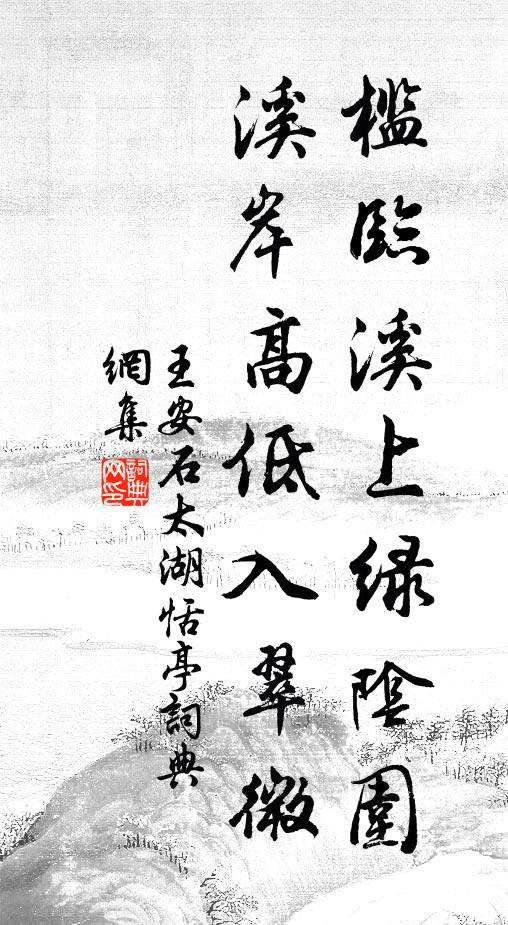 檻臨溪上綠陰圍
溪岸高低入翠微
王安石太湖恬亭詞典
網集
詞典
网印